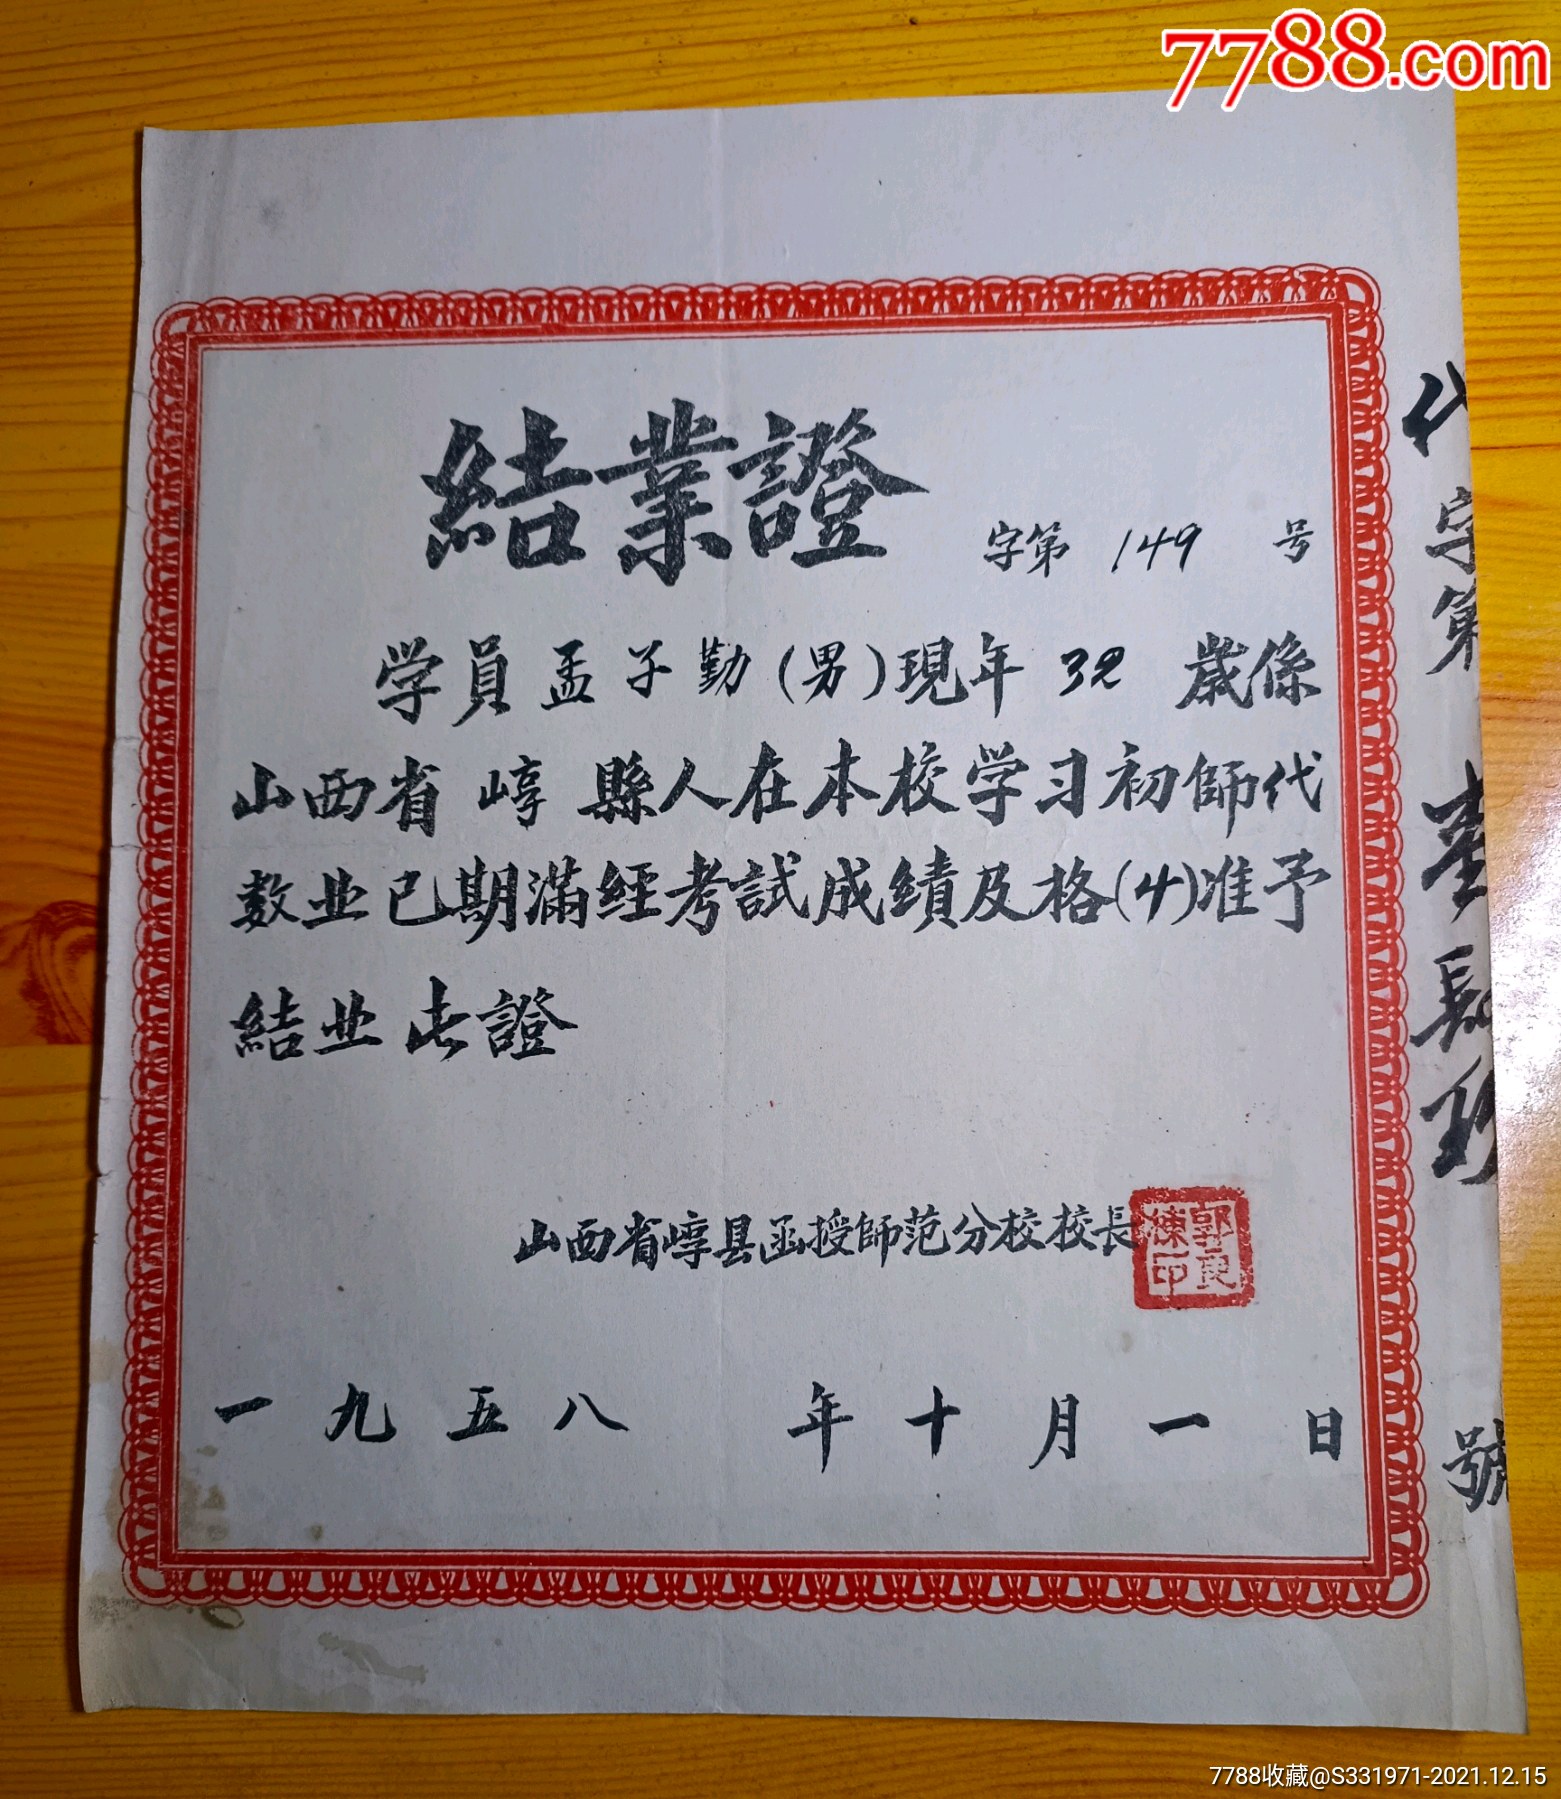 7788.com
結業證
字第 149 号
学員孟子勤(男)現年32歲係
山西省崞縣人在本校学习初師代
数业已期滿經考試成績及格(4)准予
結业此證
山西省崞县函授師范分校校長
郭良棟印
一九五八 年十月一日
代字第 號
7788收藏@S331971-2021.12.15